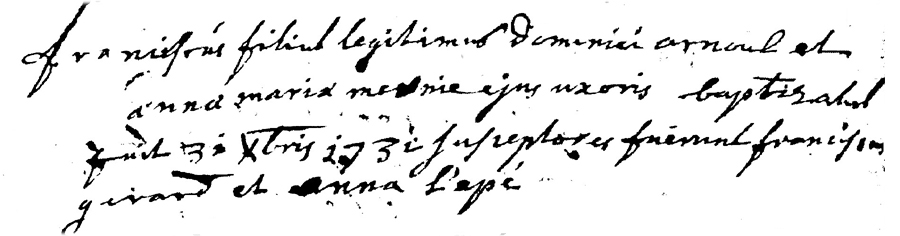 franciscus filius legitimus dominici arnoul et
anna maria mesnie ejus uxoris baptizatus
fuit 3a Xbris 1731 susceptores fuerunt franciscus
girard et anna l'apé